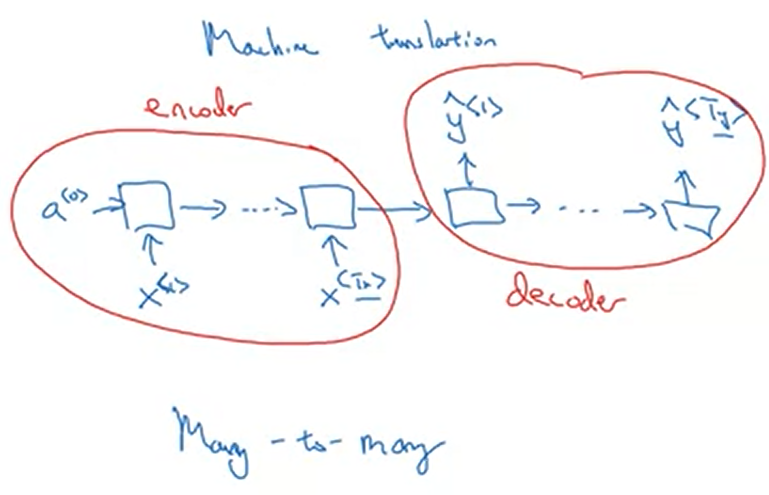 Machine translartion
encoder
ŷ<1> ŷ<Ty>
a<0> → → ....→ → → ... →
x<1> x<Tx>
decoder
Many-to-many